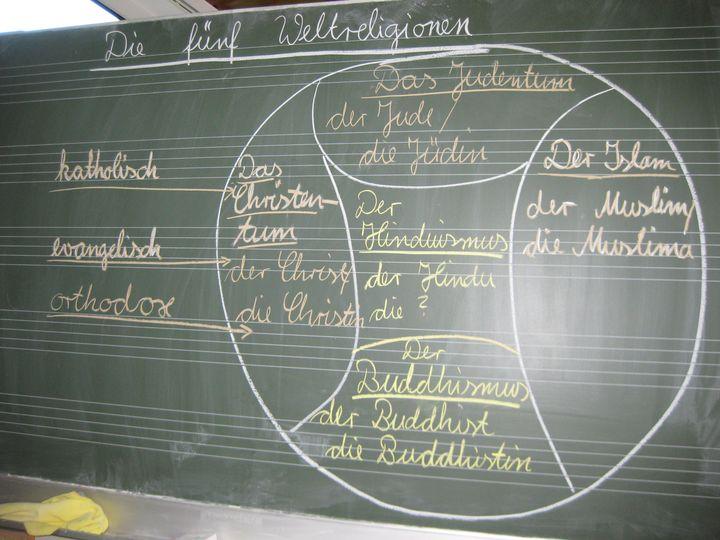 Die fünf Weltreligionen
Das Judentum
der Jude/
die Jüdin
katholisch
evangelisch
orthodox
Das
Christen-
tum
der Christ/
die Christin
Der
Hinduismus
der Hindu
die ?
Der Islam
der Muslim/
die Muslima
Der
Buddhismus
der Buddhist
die Buddhistin